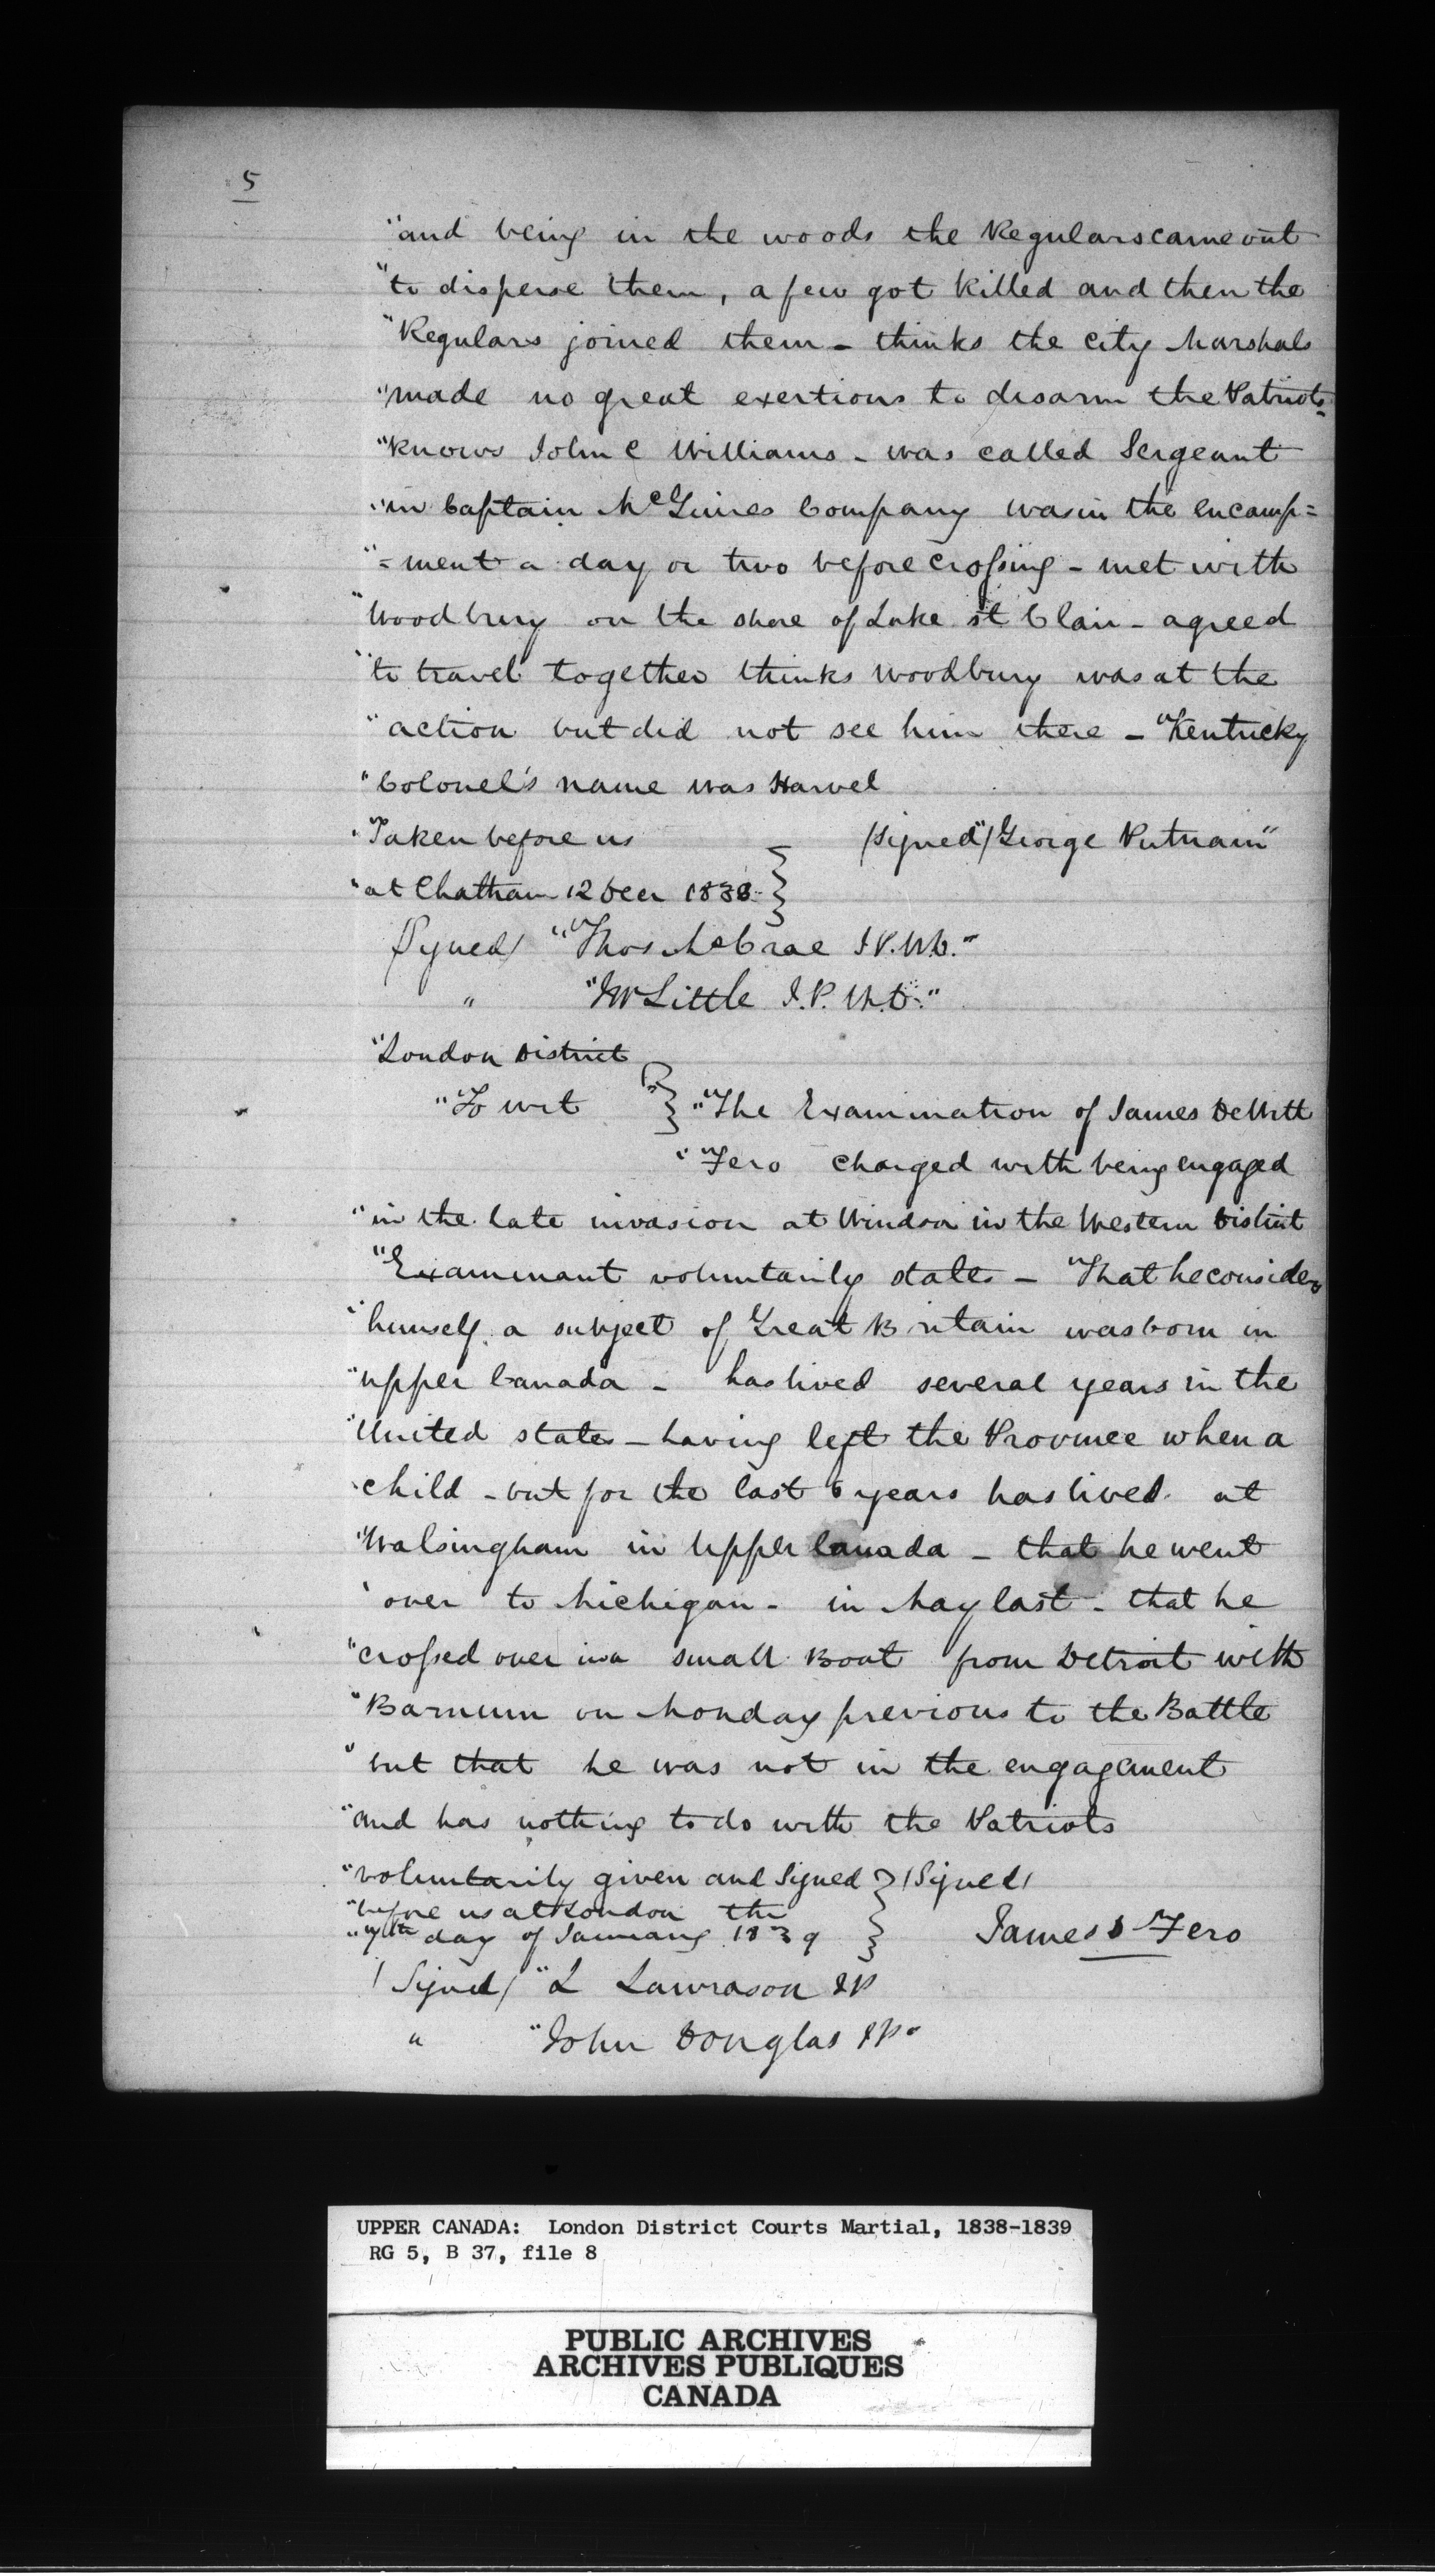 5
"and being in the woods the Regulars came out
"to disperse them, a few got killed and then the
"Regulars joined them - thinks the city Marshals
"made no great exertions to disarm the Patriots-
"knows John C Williams - was called Sergeant
"in Captain McGuires Company was in the encamp=
"=ment a day or two before crossing - met with
"Woodbury on the shore of Lake St Clair - agreed
"to travel together thinks Woodbury was at the
"action but did not see him there - "Kentucky
"Colonel's name was Harvel
"Taken before us (signed) "George Putnam"
"at Chatham 12 Decr 1838
(Signed) "Thos McCrae J.P. W.D."
" "JW Little J.P. W.D."
"London District
"To wit } "The Examination of James DeWitt
"Fero charged with being engaged
"in the late invasion at Windsor in the Western District
"Examinant voluntarily states - That he considers
"himself a subject of Great Britain was born in
"Upper Canada - has lived several years in the
"United States - having left the Province when a
"child - but for the last 6 years has lived at
"Walsingham in Upper Canada - that he went
"over to Michigan - in May last - that he
"crossed over in a small Boat from Detroit with
"Barnum on Monday previous to the Battle
"but that he was not in the engagement
"and has nothing to do with the Patriots
"voluntarily given and Signed } (Signed)
"before us at London the
day of January 1839 } James D Fero
(Signed) "L Lawrason JP
" "John Douglas JP"
UPPER CANADA: London District Courts Martial, 1838-1839
RG 5, B 37, file 8
PUBLIC ARCHIVES
ARCHIVES PUBLIQUES
CANADA